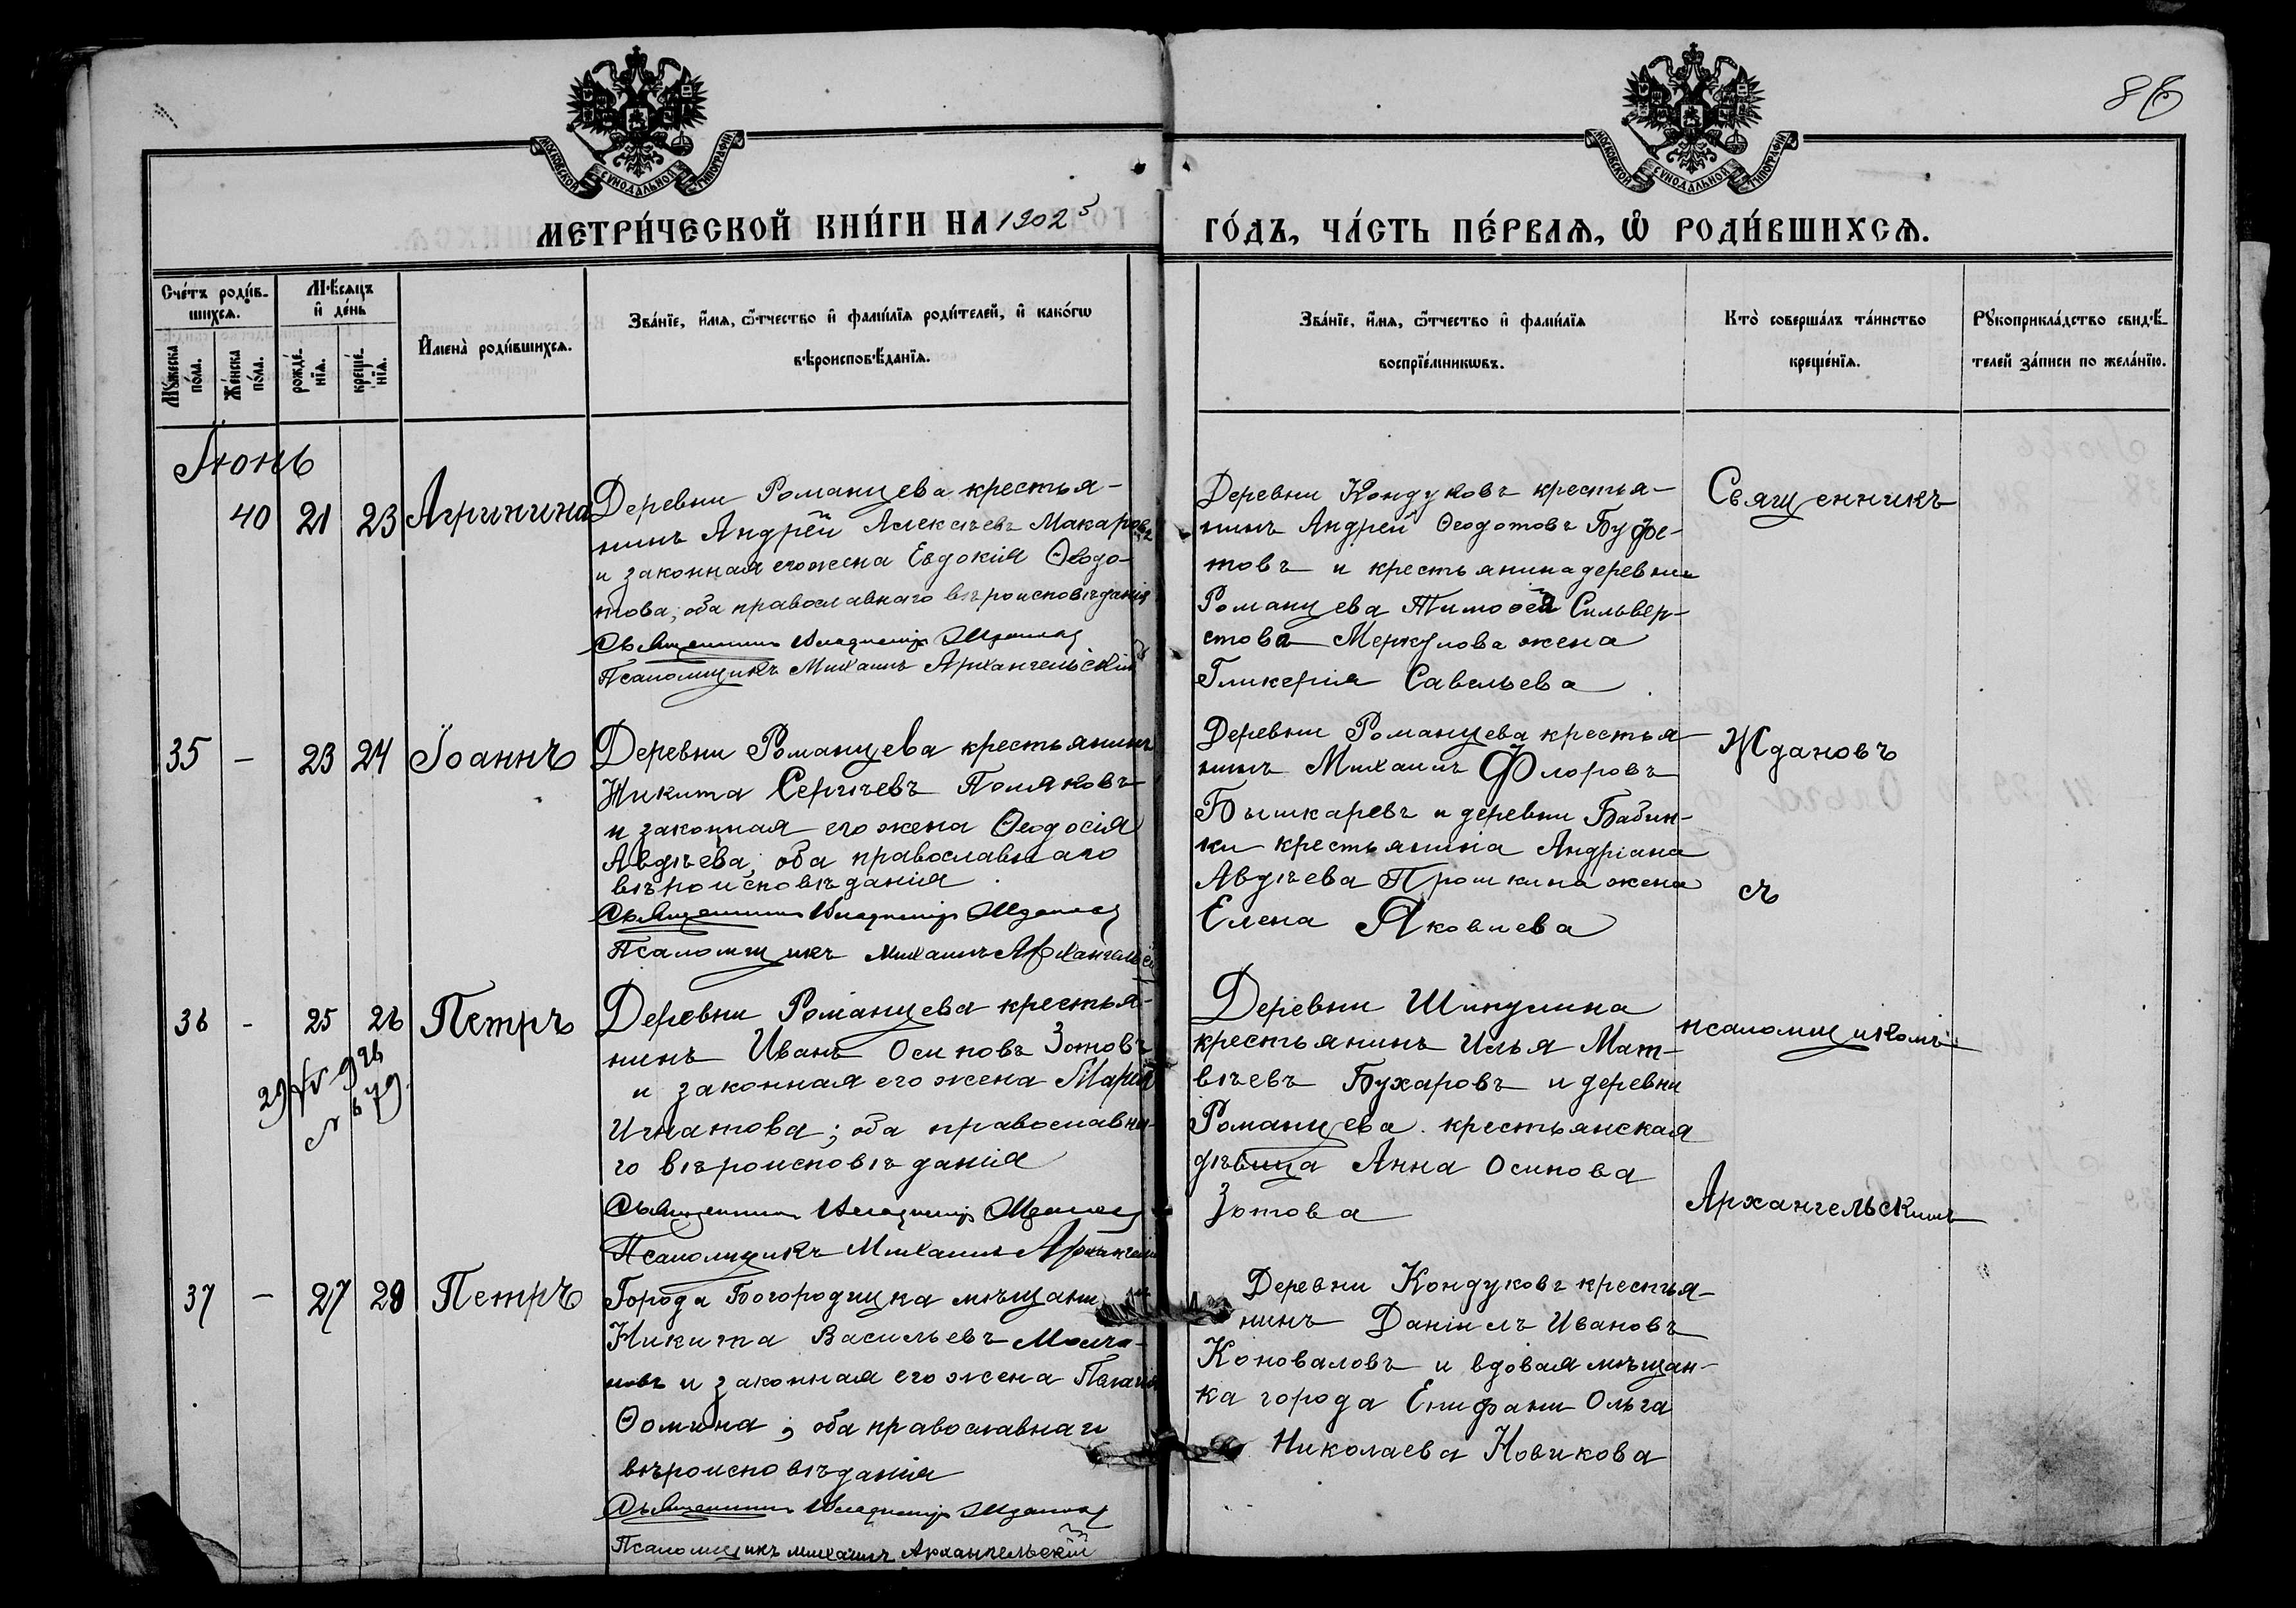 86
МОСКОВСКОЙ СѴНОДАЛЬНОЙ ТИПОГРАФІИ
МОСКОВСКОЙ СѴНОДАЛЬНОЙ ТИПОГРАФІИ
МЕТРИ́ЧЕСКОЙ КНИ́ГИ НА 1902
ГО́ДЪ, ЧА́СТЬ ПЕ́РВАѦ, Ѡ҆ РОДИ́ВШИХСѦ.
Сче́тъ роди́в-
шихсѧ.
Мꙋ́жеска
по́ла.
Же́нска
по́ла.
Мѣ́сѧцъ
и҆ де́нь
рожде́-
нїѧ.
креще́-
нїѧ.
И҆мена̀ роди́вшихсѧ.
Зва́нїе, и҆́мѧ, ѻ҆́тчество и҆ фами́лїѧ роди́телей, и҆ како́гѡ
вѣроисповѣ́данїѧ.
Зва́нїе, и҆́мѧ, ѻ҆́тчество и҆ фами́лїѧ
воспрїе́мникѡвъ.
Кто̀ соверша́лъ та́инство
креще́нїѧ.
Рꙋкоприкла́дство свидѣ́-
телей за́писи по жела́нїю.
Іюнь
40 21 23 Агрипина
Деревни Романцева крестья-
нинъ Андрей Алексѣевъ Макаровъ
и законная его жена Евдокія Ѳеодо-
това; оба православнаго вѣроисповѣданія
Священникъ Владиміръ Ждановъ
Псаломщикъ Михаилъ Архангельскій
Деревни Кондуковъ крестья-
нинъ Андрей Ѳеодотовъ Буфе-
товъ и крестьянина деревни
Романцева Тимоѳея Сильвер-
стова Меркулова жена
Гликерія Савельева
Священникъ
35 - 23 24 Іоаннъ
Деревни Романцева крестьянинъ
Никита Сергѣевъ Поляковъ
и законная его жена Ѳеодосія
Авдѣева; оба православнаго
вѣроисповѣданія
Священникъ Владиміръ Ждановъ
Псаломщикъ Михаилъ Архангельскій
Деревни Романцева крестья-
нинъ Михаилъ Флоровъ
Бышкаревъ и деревни Бабин-
ки крестьянина Андріана
Авдѣева Прошкина жена
Елена Яковлева
Ждановъ
съ
36 - 25 26 Петръ
29/IV-926
№ 679.
Деревни Романцева крестья-
нинъ Иванъ Осиповъ Зотовъ
и законная его жена Марія
Игнатова; оба православна-
го вѣроисповѣданія
Священникъ Владиміръ Ждановъ
Псаломщикъ Михаилъ Архангельскій
Деревни Шипулина
крестьянинъ Илья Мат-
вѣевъ Бухаровъ и деревни
Романцева крестьянская
дѣвица Анна Осипова
Зотова
псаломщикомъ
Архангельскимъ
37 - 27 28 Петръ
Города Богородицка мѣщанинъ
Никита Васильевъ Молча-
новъ и законная его жена Пелагія
Ѳомина; оба православнаго
вѣроисповѣданія
Священникъ Владиміръ Ждановъ
Псаломщикъ Михаилъ Архангельскій
Деревни Кондуковъ крестья-
нинъ Даніилъ Ивановъ
Коноваловъ и вдовая мѣщан-
ка города Епифани Ольга
Николаева Новикова